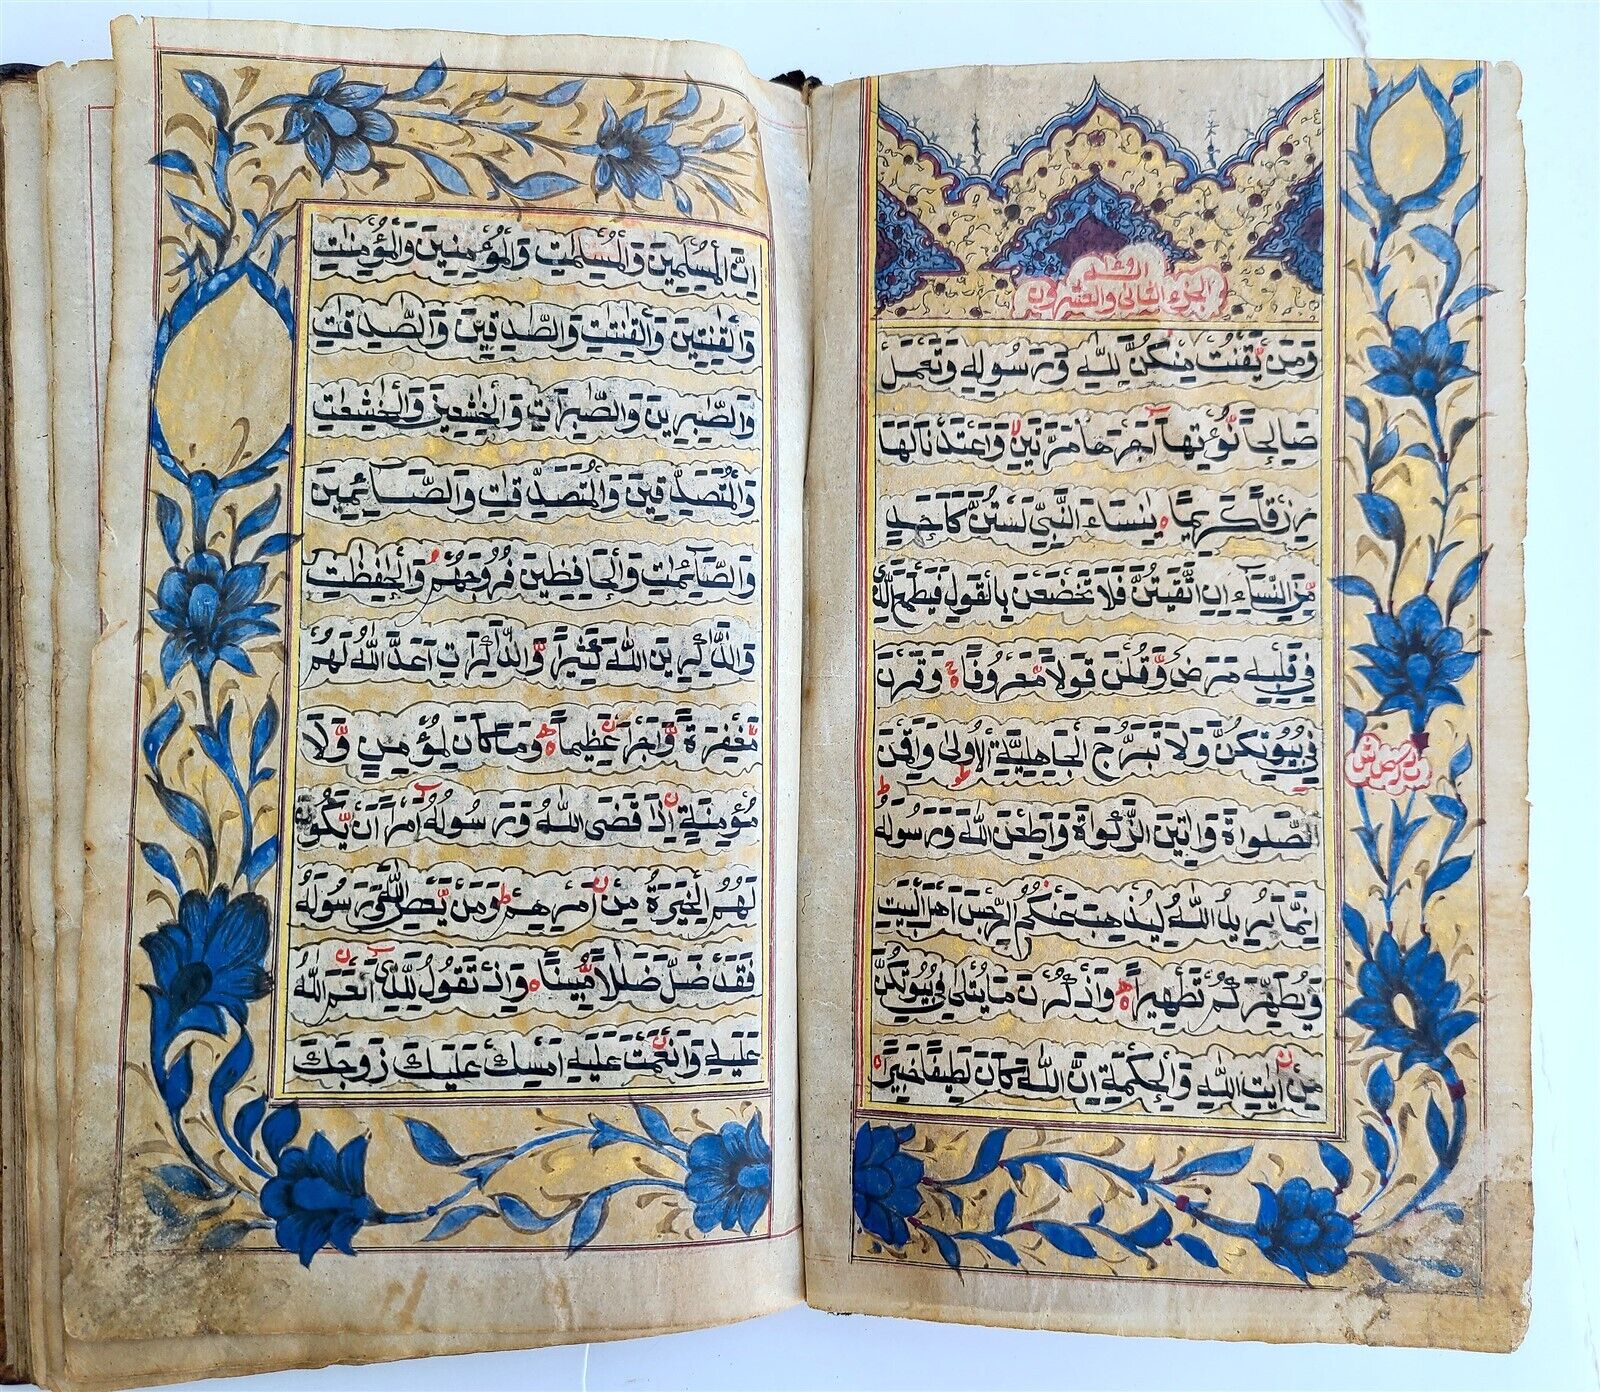 الجزء الثانى والعشرون
وَمَنْ يَّقْنُتْ مِنْكُنَّ لِلّٰهِ وَرَسُولِهٖ وَتَعْمَلْ
صَالِحًا نُّؤْتِهَا اَجْرَهَا مَرَّتَيْنِ وَاَعْتَدْنَا لَهَا
رِزْقًا كَرِيمًا يٰنِسَاءَ النَّبِىِّ لَسْتُنَّ كَاَحَدٍ
مِّنَ النِّسَاءِ اِنِ اتَّقَيْتُنَّ فَلَا تَخْضَعْنَ بِالْقَوْلِ فَيَطْمَعَ الَّذِى
فِى قَلْبِهٖ مَرَضٌ وَّقُلْنَ قَوْلًا مَّعْرُوفًا وَقَرْنَ
فِى بُيُوتِكُنَّ وَلَا تَبَرَّجْنَ تَبَرُّجَ الْجَاهِلِيَّةِ الْاُولٰى وَاَقِمْنَ
الصَّلٰوةَ وَاٰتِينَ الزَّكٰوةَ وَاَطِعْنَ اللّٰهَ وَرَسُولَهُ
اِنَّمَا يُرِيدُ اللّٰهُ لِيُذْهِبَ عَنْكُمُ الرِّجْسَ اَهْلَ الْبَيْتِ
وَيُطَهِّرَكُمْ تَطْهِيرًا وَاذْكُرْنَ مَا يُتْلٰى فِى بُيُوتِكُنَّ
مِنْ اٰيٰتِ اللّٰهِ وَالْحِكْمَةِ اِنَّ اللّٰهَ كَانَ لَطِيفًا خَبِيرًا
اِنَّ الْمُسْلِمِينَ وَالْمُسْلِمٰتِ وَالْمُؤْمِنِينَ وَالْمُؤْمِنٰتِ
وَالْقٰنِتِينَ وَالْقٰنِتٰتِ وَالصّٰدِقِينَ وَالصّٰدِقٰتِ
وَالصّٰبِرِينَ وَالصّٰبِرَاتِ وَالْخٰشِعِينَ وَالْخٰشِعٰتِ
وَالْمُتَصَدِّقِينَ وَالْمُتَصَدِّقٰتِ وَالصَّائِمِينَ
وَالصَّائِمٰتِ وَالْحَافِظِينَ فُرُوجَهُمْ وَالْحٰفِظٰتِ
وَالذَّاكِرِينَ اللّٰهَ كَثِيرًا وَّالذَّاكِرَاتِ اَعَدَّ اللّٰهُ لَهُمْ
مَّغْفِرَةً وَّاَجْرًا عَظِيمًا وَمَا كَانَ لِمُؤْمِنٍ وَّلَا
مُؤْمِنَةٍ اِذَا قَضَى اللّٰهُ وَرَسُولُهُ اَمْرًا اَنْ يَّكُونَ
لَهُمُ الْخِيَرَةُ مِنْ اَمْرِهِمْ وَمَنْ يَّعْصِ اللّٰهَ وَرَسُولَهُ
فَقَدْ ضَلَّ ضَلٰلًا مُّبِينًا وَاِذْ تَقُولُ لِلَّذِى اَنْعَمَ اللّٰهُ
عَلَيْهِ وَاَنْعَمْتَ عَلَيْهِ اَمْسِكْ عَلَيْكَ زَوْجَكَ